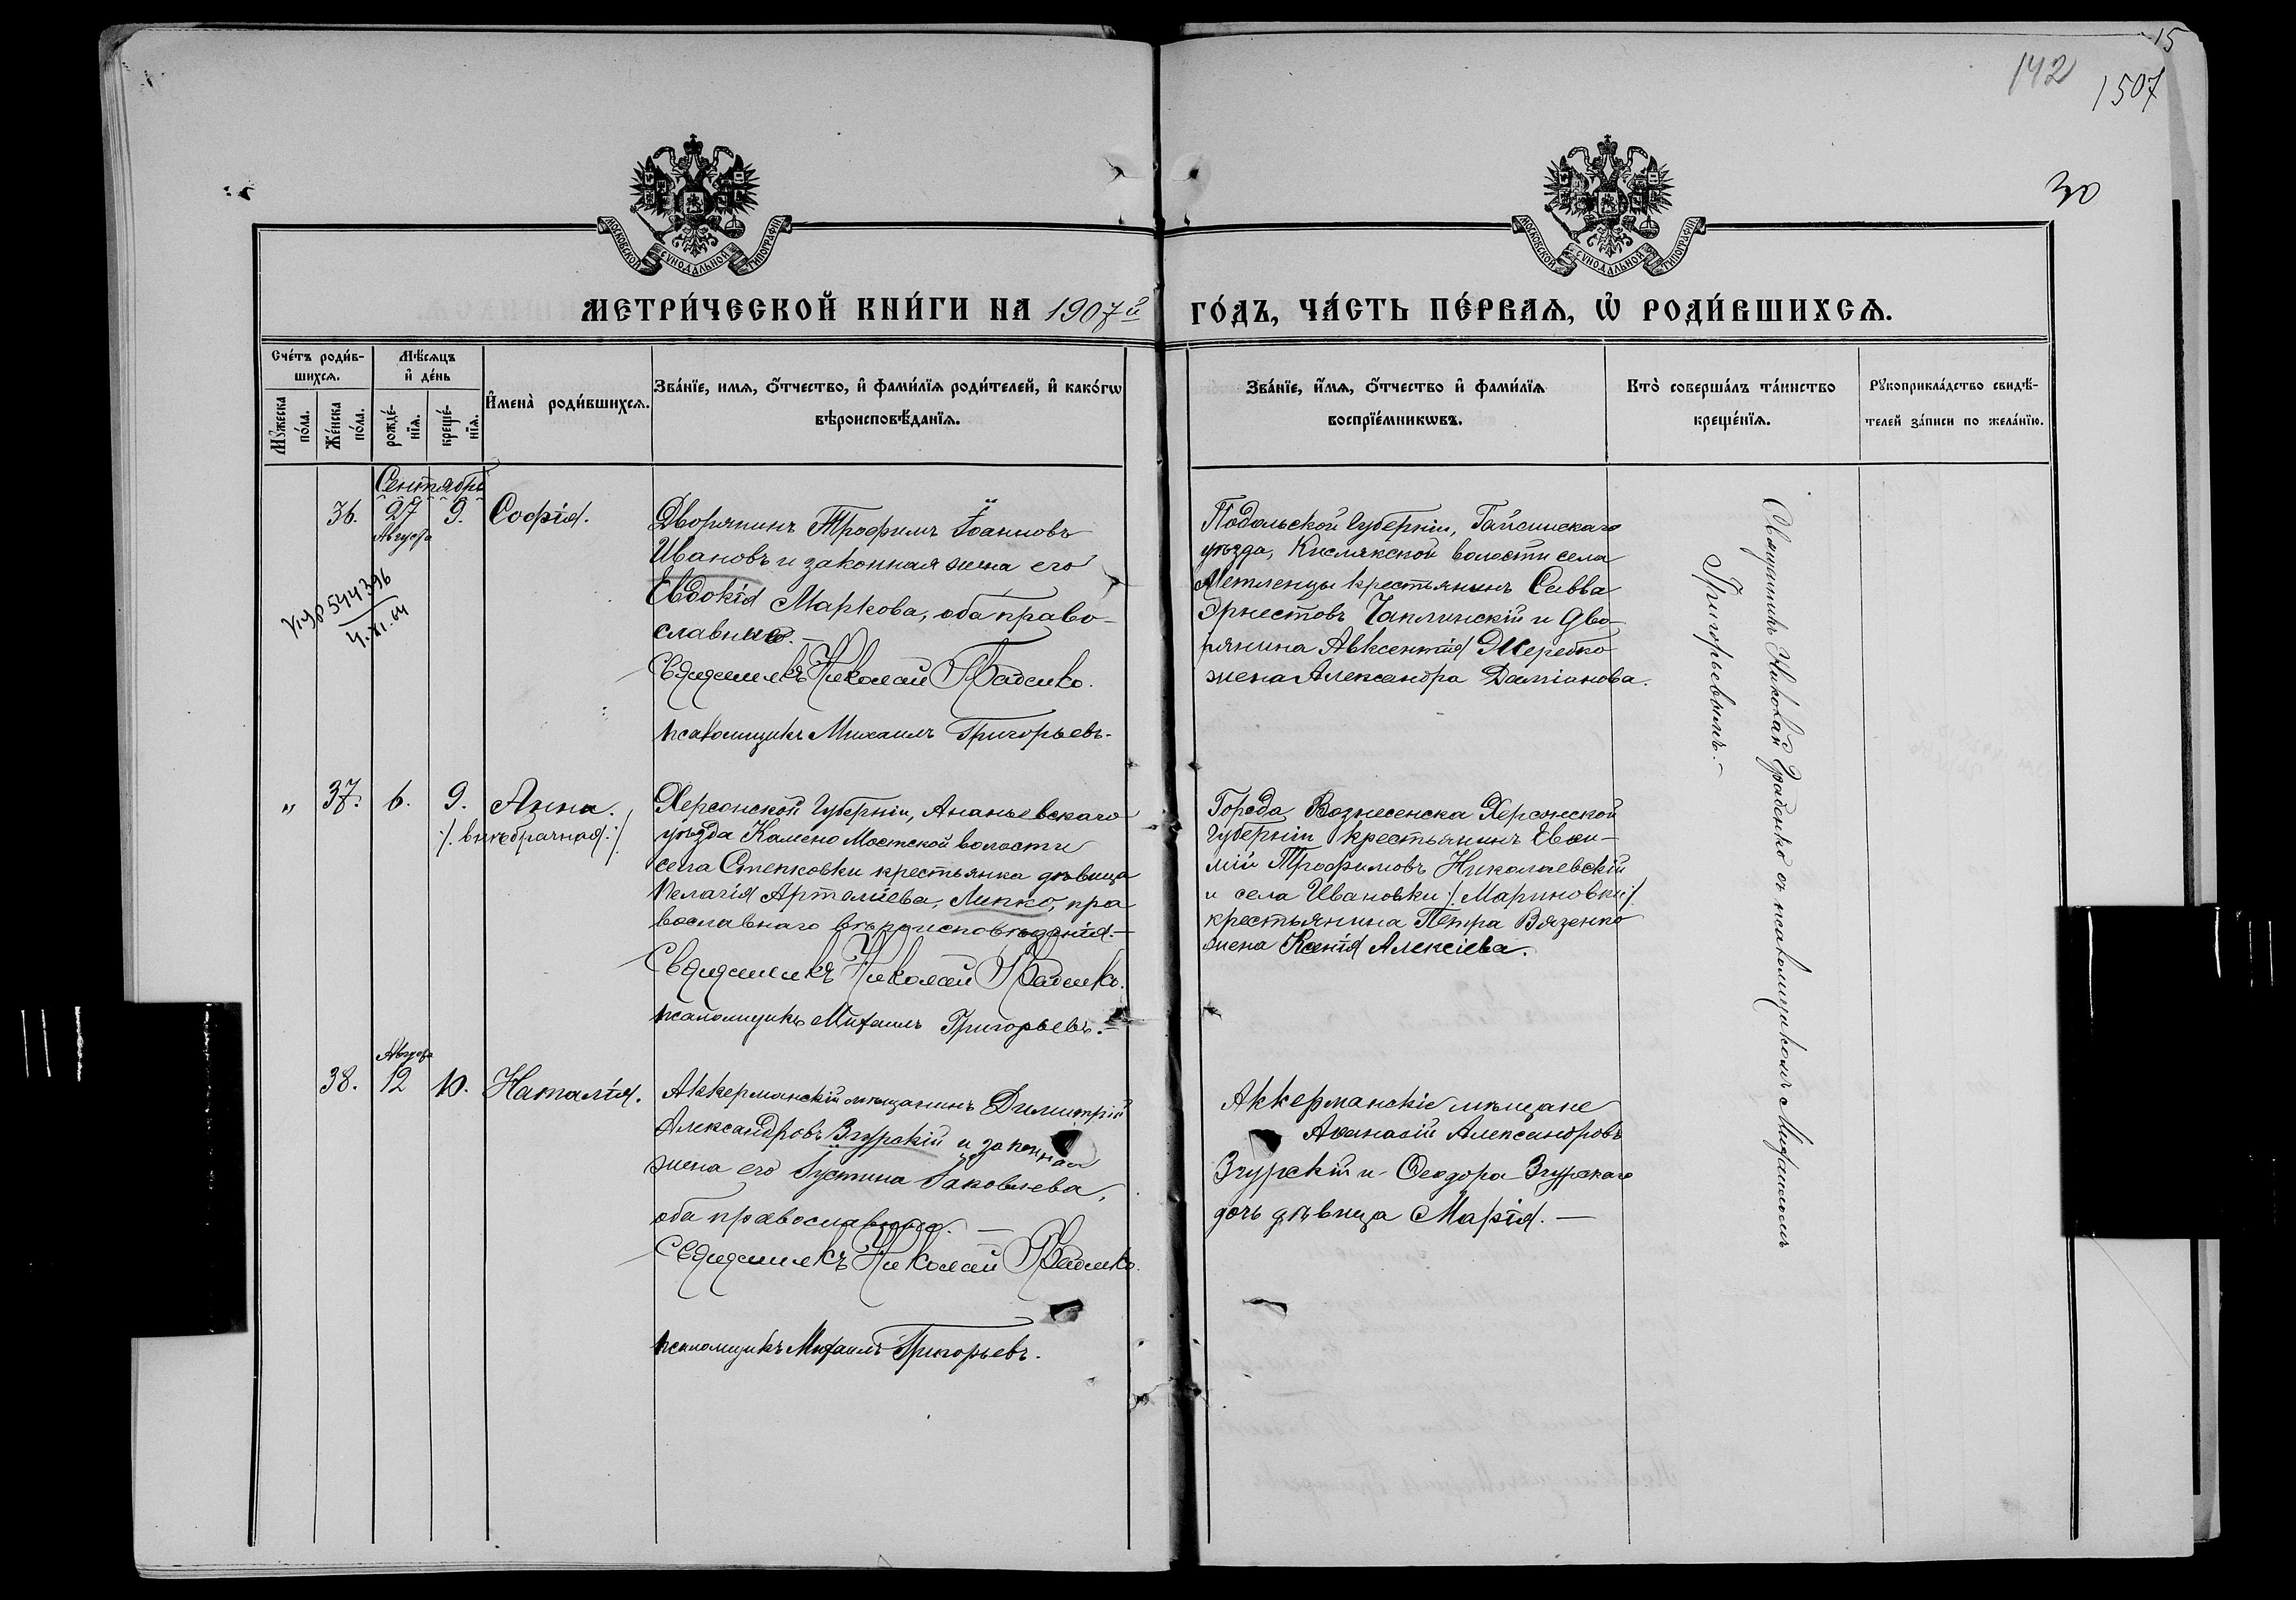 15
142
1507
30
МОСКОВСКОЙ СѴНОДАЛЬНОЙ ТИПОГРАФІИ
МОСКОВСКОЙ СѴНОДАЛЬНОЙ ТИПОГРАФІИ
МЕТРИ́ЧЕСКОЙ КНИ́ГИ НА 1907й ГО́ДЪ, ЧА́СТЬ ПЕ́РВАѦ, Ѡ҆ РОДИ́ВШИХСѦ.
Сче́тъ роди́в-
шихсѧ.
Мꙋ́жеска по́ла.
Же́нска по́ла.
Мѣ́сѧцъ
и҆ де́нь
рожде́-
нїѧ.
креще́-
нїѧ.
И҆мена̀ роди́вшихсѧ.
Зва́нїе, имѧ, ѻ҆́тчество, и҆ фами́лїѧ роди́телей, и҆ како́гѡ
вѣроисповѣ́данїѧ.
Зва́нїе, и҆́мѧ, ѻ҆́тчество и҆ фами́лїѧ
воспрїе́мникѡвъ.
Кто̀ соверша́лъ та́инство
креще́нїѧ.
Рꙋкоприкла́дство свидѣ́-
телей за́писи по жела́нїю.
Сентябрь
36. 27 9. Софія.
Августа
544396
4.XI.64
Дворянинъ Трофимъ Іоанновъ
Ивановъ и законная жена его
Евдокія Маркова, оба право-
славные.—
Священникъ Николай Граденко.
псаломщикъ Михаилъ Григорьевъ.
Подольской губерніи, Гайсинскаго
уѣзда, Кислякской волости села
Метленцы крестьянинъ Савва
Эрнестовъ Чаплинскій и дво-
рянина Авксентія Жеребко
жена Александра Даміанова.
Священникъ Николай Граденко съ псаломщикомъ Михаиломъ
Григорьевымъ.—
" 37. 6. 9. Анна.
/. внѣбрачная ./
Херсонской губерніи, Ананьевскаго
уѣзда Камено Мостской волости
села Степковки крестьянка дѣвица
Пелагія Артеміева, Липко, пра
вославнаго вѣроисповѣданія.—
Священникъ Николай Граденко.
псаломщикъ Михаилъ Григорьевъ.—
Города Вознесенска Херсонской
губерніи крестьянинъ Евѳи-
мій Трофимовъ Николаевскій
и села Ивановки /. Мариновки ./
крестьянина Петра Вязенко
жена Ксенія Алексіева.
Августа
38. 12 10. Наталія.
Аккерманскій мѣщанинъ Димитрій
Александровъ Згурскій и законная
жена его Іустина Іаковлева,
оба православные. —
Священникъ Николай Граденко.
псаломщикъ Михаилъ Григорьевъ.
Аккерманскіе мѣщане
Аѳанасій Александровъ
Згурскій и Ѳеодора Згурскаго
дочь дѣвица Марія. —